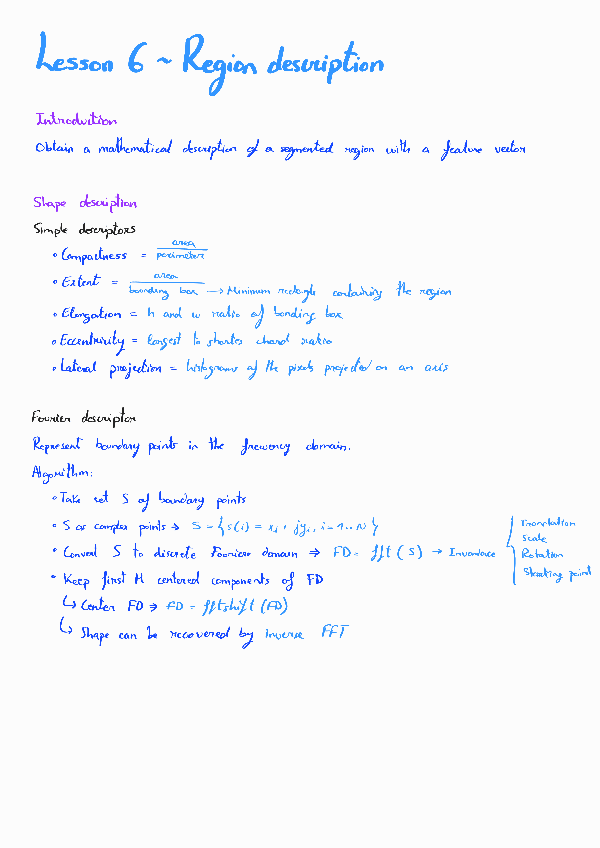 Lesson 6 ~ Region description
Introduction
Obtain a mathematical description of a segmented region with a feature vector
Shape description
Simple descriptors
• Compactness = area / perimeter
• Extent = area / bounding box → Minimum rectangle containing the region
• Elongation = h and w ratio of bonding box
• Eccentricity = longest to shortes chord ratio
• Lateral projection = histograms of the pixels projected on an axis
Fourier descriptor
Represent boundary points in the frewency domain.
Algorithm:
• Take set S of boundary points
• S as complex points → S = {s(i) = xi + jyi, i = 1..N}
• Convert S to discrete Fourier domain ⇒ FD = fft(S) → Invariance { Translation
Scale
Rotation
Starting point
• Keep first M centered components of FD
↳ Center FD ⇒ FD = fftshift(FD)
↳ Shape can be recovered by inverse FFT